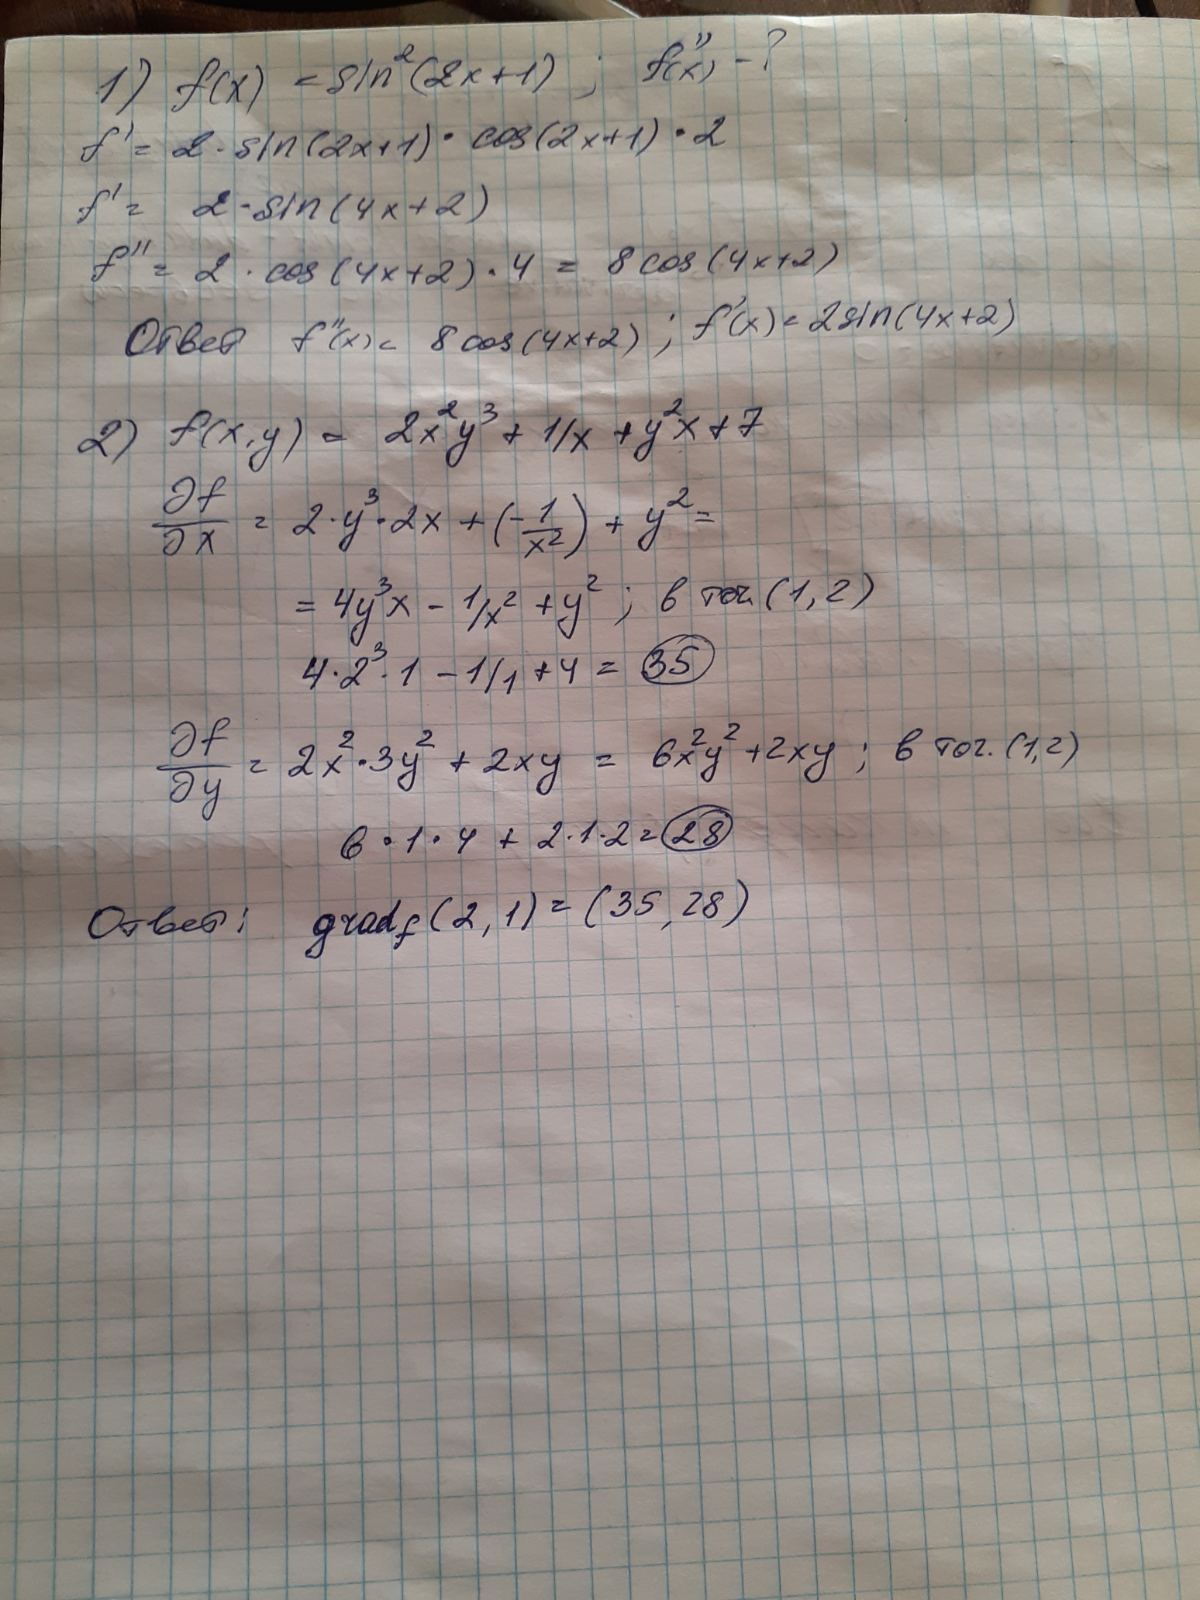 1) f(x) = sin²(2x+1) ; f''(x) - ?
f' = 2·sin(2x+1)·cos(2x+1)·2
f' = 2·sin(4x+2)
f'' = 2·cos(4x+2)·4 = 8cos(4x+2)
Ответ f''(x) = 8cos(4x+2) ; f'(x) = 2sin(4x+2)
2) f(x,y) = 2x²y³ + 1/x + y²x + 7
∂f/∂x = 2·y³·2x + (-1/x²) + y² =
= 4y³x - 1/x² + y² ; в точ. (1,2)
4·2³·1 - 1/1 + 4 = 35
∂f/∂y = 2x²·3y² + 2xy = 6x²y² + 2xy ; в точ. (1,2)
6·1·4 + 2·1·2 = 28
Ответ: grad f (2,1) = (35,28)